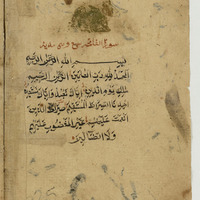 سورة الفاتحة سبع
بسم الله الرحمن الرحيم
الحمد لله رب العالمين الرحمن الرحيم
ملك يوم الدين إياك نعبد وإياك نستعين
اهدنا الصراط المستقيم صراط الذين
أنعمت عليهم غير المغضوب عليهم
ولا الضالين